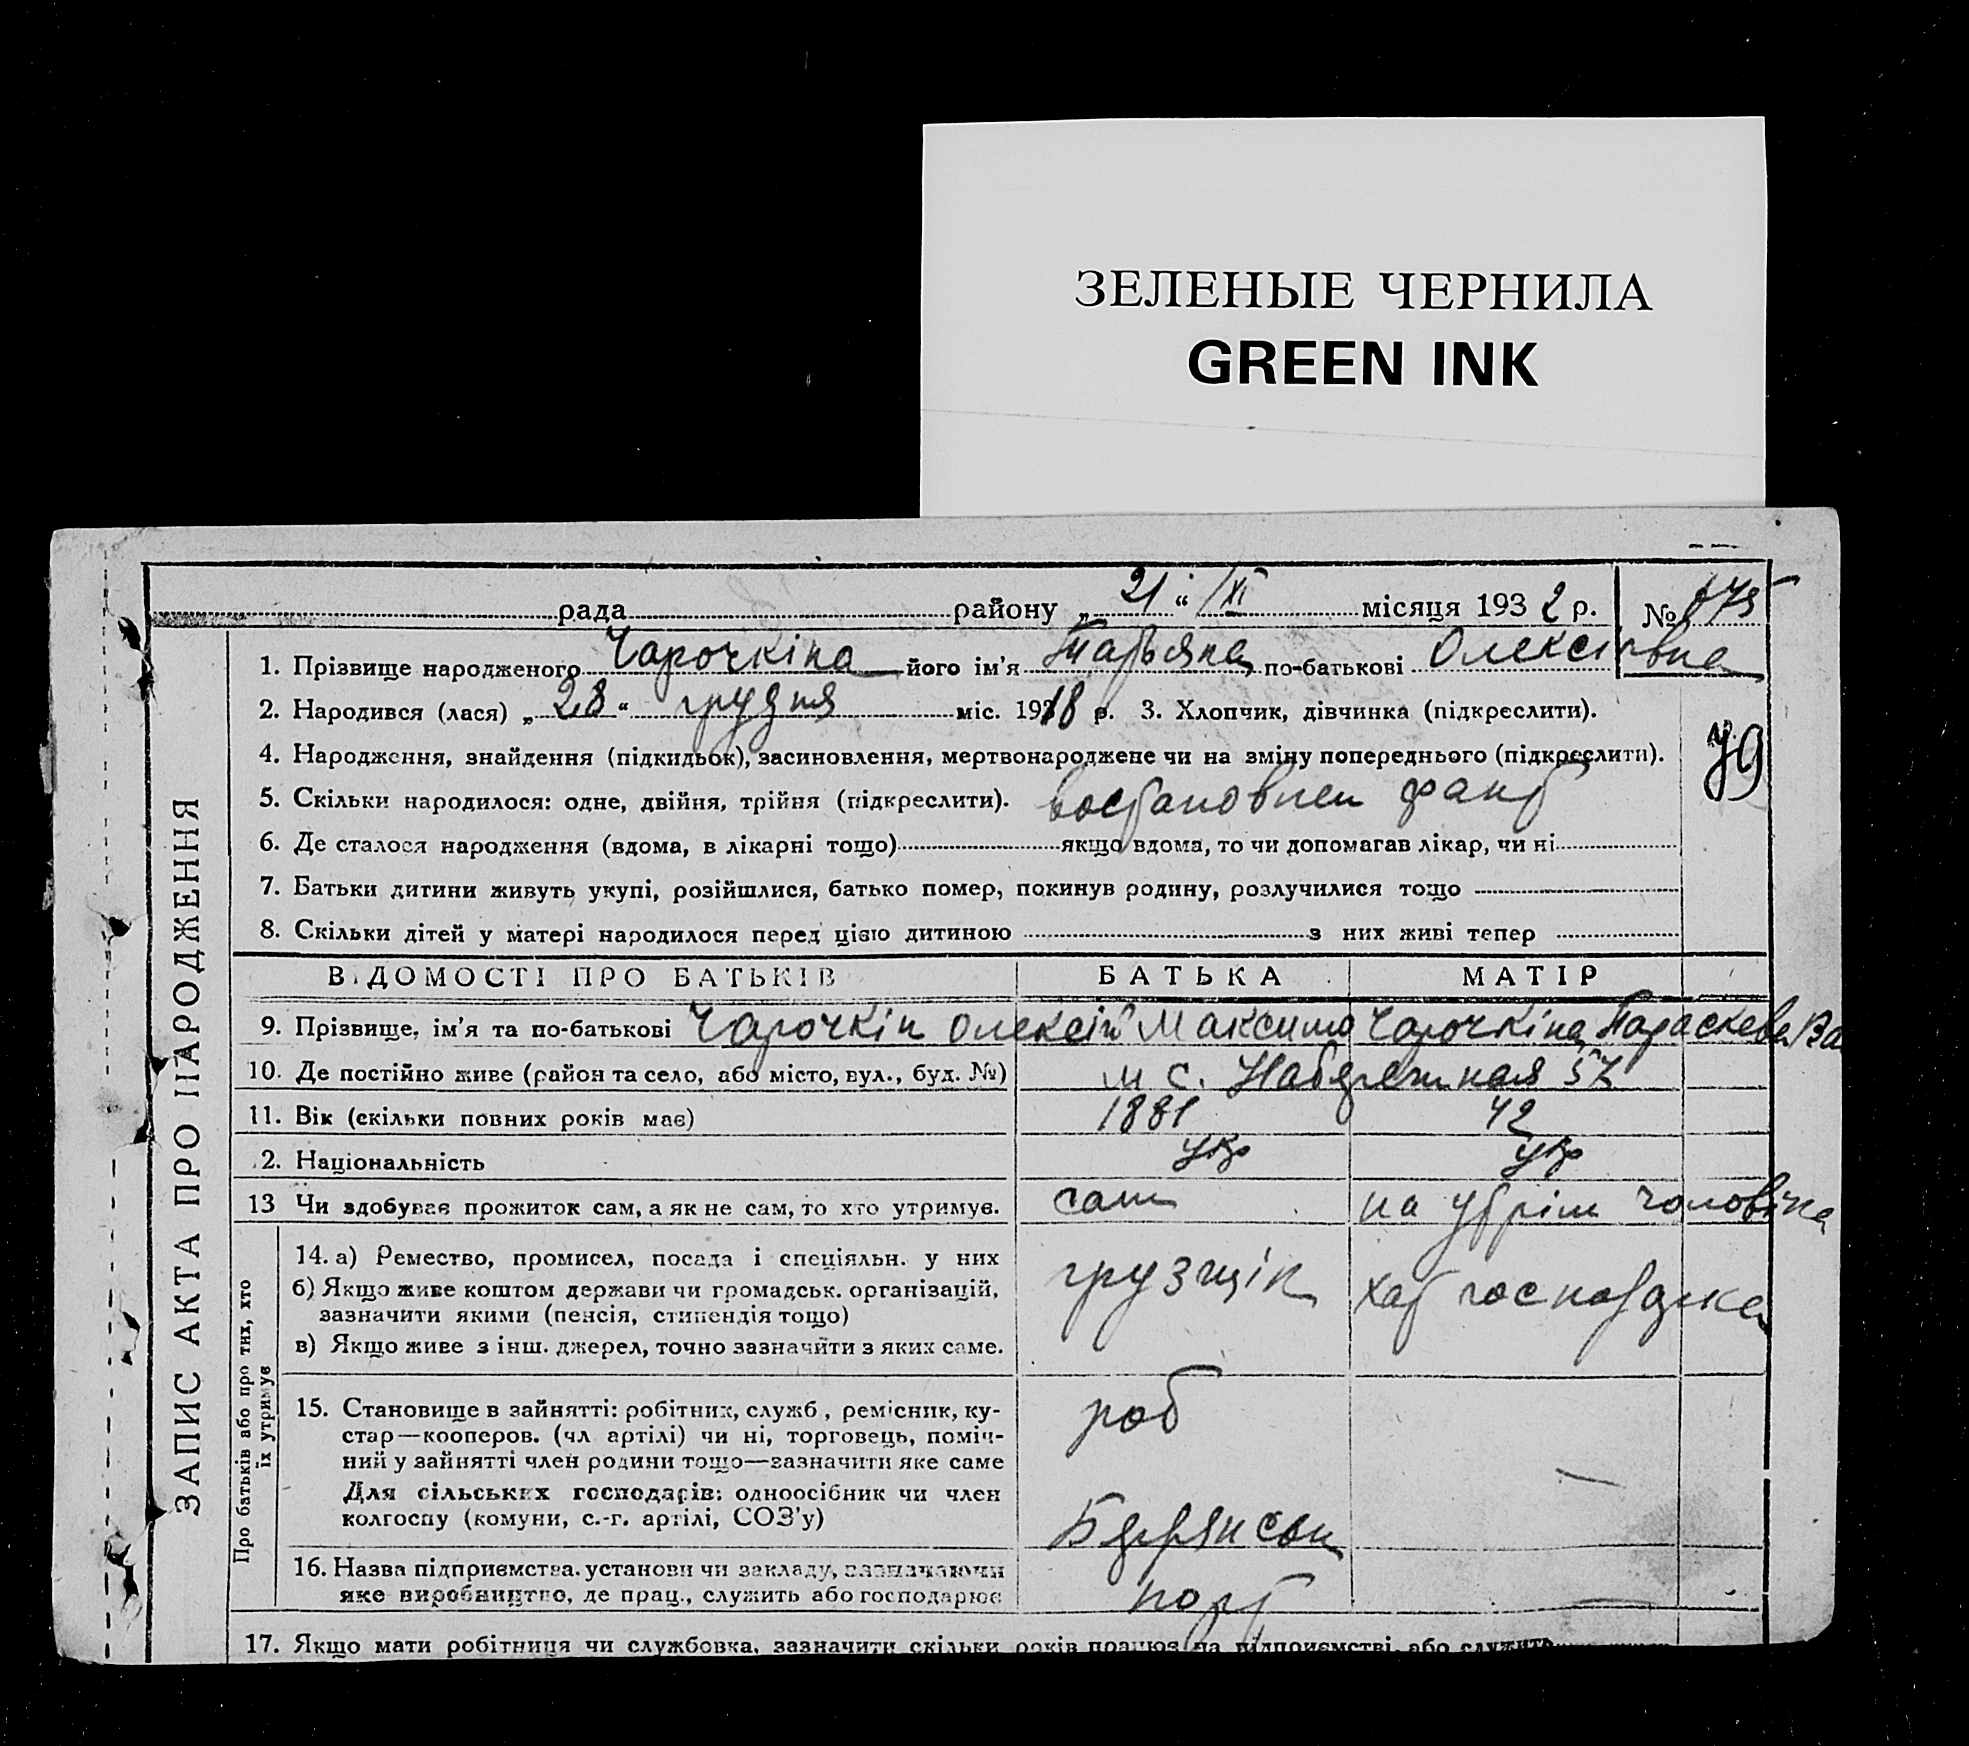 ЗЕЛЕНЫЕ ЧЕРНИЛА
GREEN INK
рада района „21“ /XI місяця 1932 р. №
1. Прізвище народженого Чарочкіна його ім'я Татьяна по-батькові Олексіївна
2. Народився (лася) „28“ грудня міс. 1918 р. 3. Хлопчик, дівчинка (підкреслити).
4. Народження, знайдення (підкидьок), засиновлення, мертвонароджене чи на зміну попереднього (підкреслити).
79
5. Скільки народилося: одне, двійня, трійня (підкреслити). востановлен
6. Де сталося народження (вдома, в лікарні тощо) якщо вдома, то чи допомагав лікар, чи ні
7. Батьки дитини живуть укупі, розійшлися, батько помер, покинув родину, розлучилися тощо
8. Скільки дітей у матері народилося перед цією дитиною з них живі тепер
ЗАПИС АКТА ПРО НАРОДЖЕННЯ
ВІДОМОСТІ ПРО БАТЬКІВ БАТЬКА МАТІР
9. Прізвище, ім'я та по-батькові Чарочкін Олексій Максимо Чарочкіна Параскева Ва
10. Де постійно живе (район та село, або місто, вул., буд. №) м с. 57
11. Вік (скільки повних років має) 1881 42
2. Національність укр укр
13 Чи здобуває прожиток сам, а як не сам, то хто утримує. сам на утрім чоловіка
Про батьків або про тих, хто їх утримує
14. а) Ремество, промисел, посада і спеціяльн. у них грузщік хат господжка
б) Якщо живе коштом держави чи громадськ. організацій,
зазначити якими (пенсія, стипендія тощо)
в) Якщо живе з інш. джерел, точно зазначити з яких саме.
15. Становище в зайнятті: робітник, служб, ремісник, ку- роб
стар—кооперов. (чл артілі) чи ні, торговець, поміч-
ний у зайнятті член родини тощо—зазначити яке саме
Для сільських господарів: одноосібник чи член
колгоспу (комуни, с.-г. артілі, СОЗ'у)
16. Назва підприємства, установи чи закладу, зазначаючи Бердянськ
яке виробництво, де прац., служить або господарює порт
17. Якщо мати робітниця чи службовка, зазначити скільки років працює на підприємстві або служить